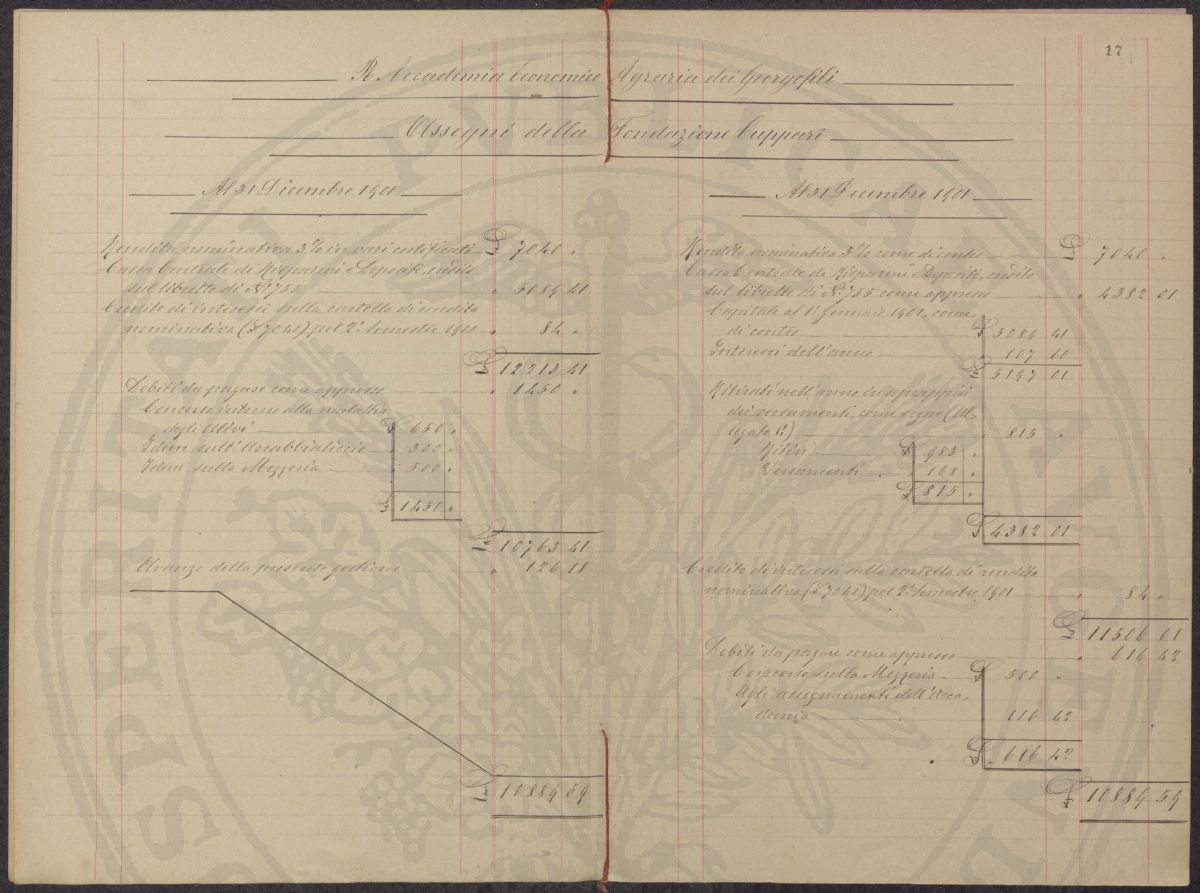 17
R. Accademia Economico Agraria dei Georgofili
Assegni della Fondazione Cuppari
Al 31 Dicembre 1901
Rendita nominativa 3% in vari certificati £ 7040 "
Cassa Centrale di Risparmi e Depositi, credito
sul libretto di N.° 755 " 5089 41
Credito di interessi sulla cartella di rendita
nominativa (£ 7040) pel 2.° Semestre 1900 " 84 "
£ 12213 41
Debiti da pagare come appresso " 1450 "
Concorso intorno alla malattia
degli Ulivi £ 650 "
Idem sull'Arrabbiaticcio " 300 "
Idem sulla Mezzeria " 500 "
£ 1450 "
£ 10763 41
Avanzo della presente gestione " 126 18
£ 10889 59
Al 31 Dicembre 1901
Rendita nominativa 3% come di contro £ 7040 "
Cassa Centrale di Risparmi e Depositi, credito
sul libretto di N.° 755 come appresso " 4382 01
Capitale al 1.° Gennaio 1901, come
di contro £ 5089 41
Interessi dell'anno " 107 60
£ 5197 01
Ritirati nell'anno in soprappiù
dei versamenti, come segue (Al-
legato A) " 815 "
Ritiri £ 983 "
Versamenti " 168 "
£ 815 "
£ 4382 01
Credito di interessi sulla cartella di rendita
nominativa (£ 7040) pel 2.° Semestre 1901 " 84 "
£ 11506 01
Debiti da pagare come appresso " 616 42
Concorso sulla Mezzeria £ 500 "
Agli assegnamenti dell'Acca-
demia " 116 42
£ 616 42
£ 10889 59
SPERINAI PVBLICAE VTI